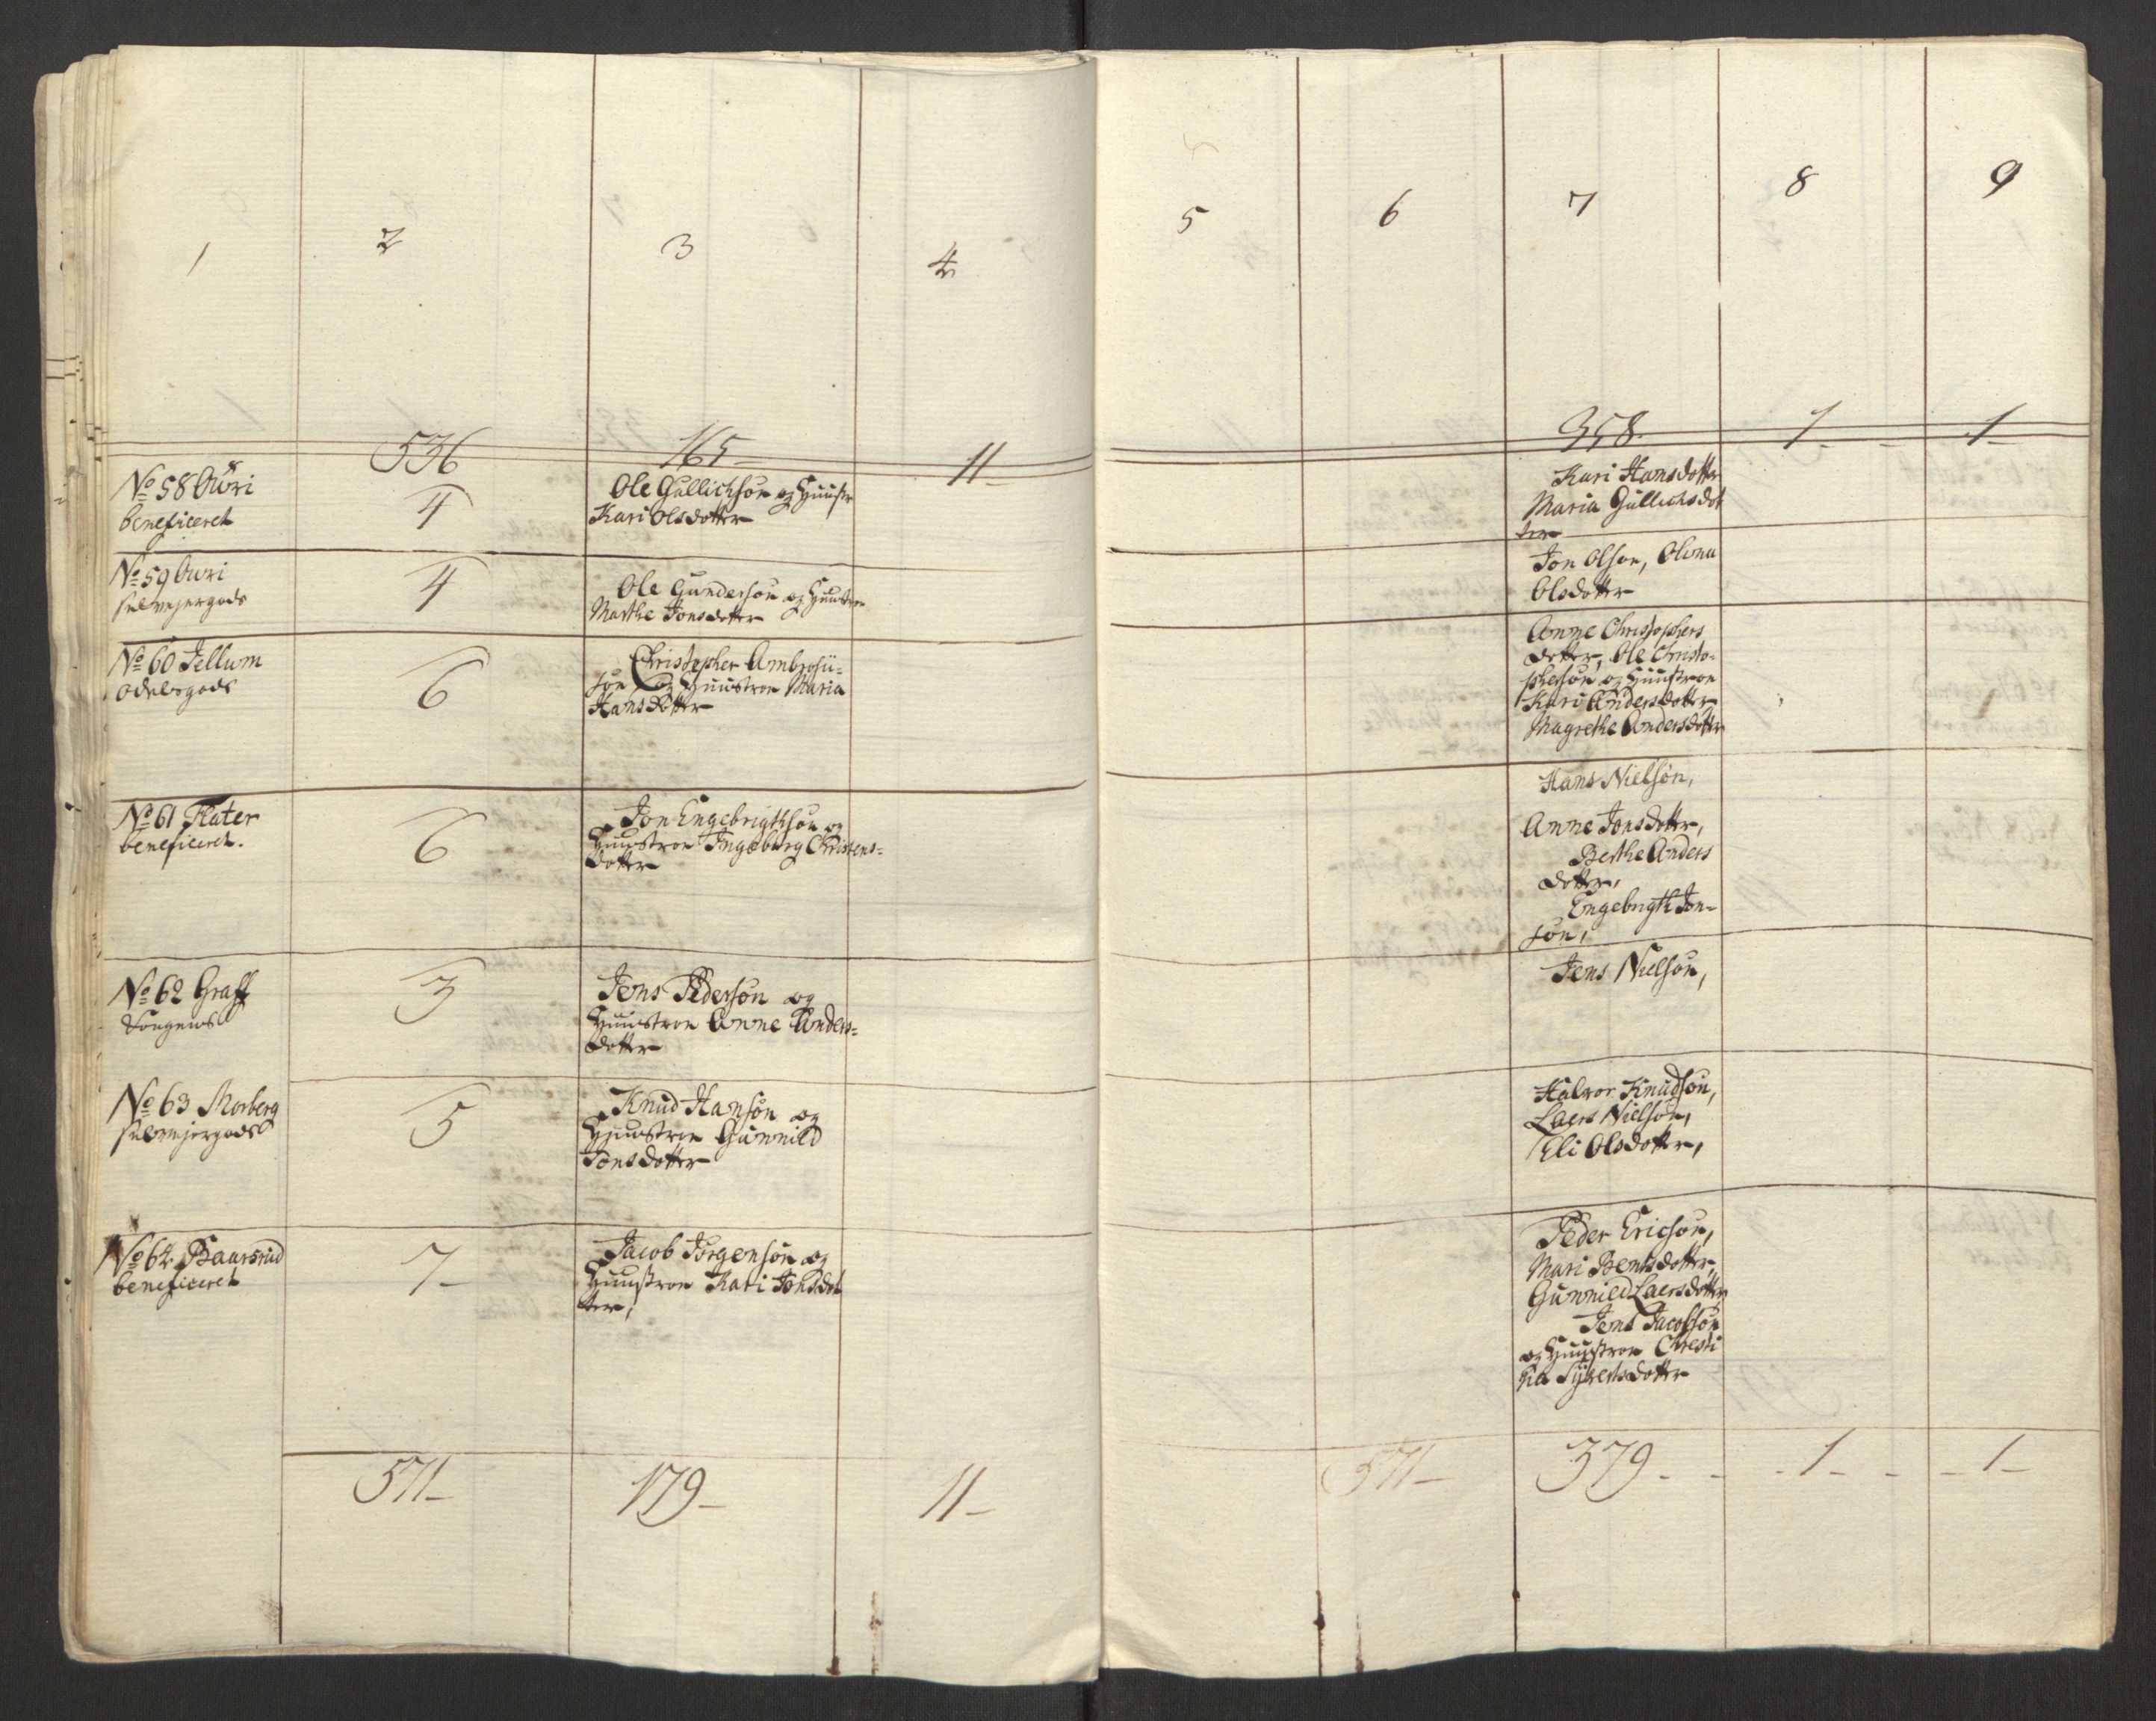 1
2
3
4
5
6
7
8
9
536
165
11
358
1
1
No 58 Auri
beneficeret
4
Ole Gullichsøn og Huustr
Kari Olsdotter
Kari Hansdotter
Maria Gullichsdot
ter
No 59 Auri
selvejergods
4
Ole Gundersøn og Huustroe
Marthe Jonsdotter
Jon Olsøn, Olena
Olsdotter
No 60 Jellum
odelsgods
6
Christopher Ambrosii-
søn og Huustroe Maria
Hansdotter
Anne Christophers
dotter, Ole Christo-
phersøn og Huustroe
Kari Andersdotter
Magrethe Andersdotter
No 61 Flater
beneficeret.
6
Jon Engebrigthsøn og
Huustroe Ingebürg Christens-
dotter
Hans Nielsøn,
Anne Jonsdotter,
Berthe Anders
dotter,
Engebrigth Jon-
søn,
No 62 Graff
3
Jens Pedersøn og
Huustroe Anne Anders-
dotter
Jens Nielsøn,
No 63 Morberg
selvejergods
5
Knud Hansøn og
Huustroe Gunnild
Jonsdotter
Halvor Knudsøn,
Laers Nielsøn,
Eli Olsdotter,
No 64 Baarsrud
beneficeret
7
Jacob Jørgensøn og
Huustroe Kari Jonsdot
ter,
Peder Ericsøn,
Mari Bentsdotter,
Gunnild Laersdotter
Jens Jacobsøn
og Huustroe Christi
dotter
571
179
11
571
379
1
1